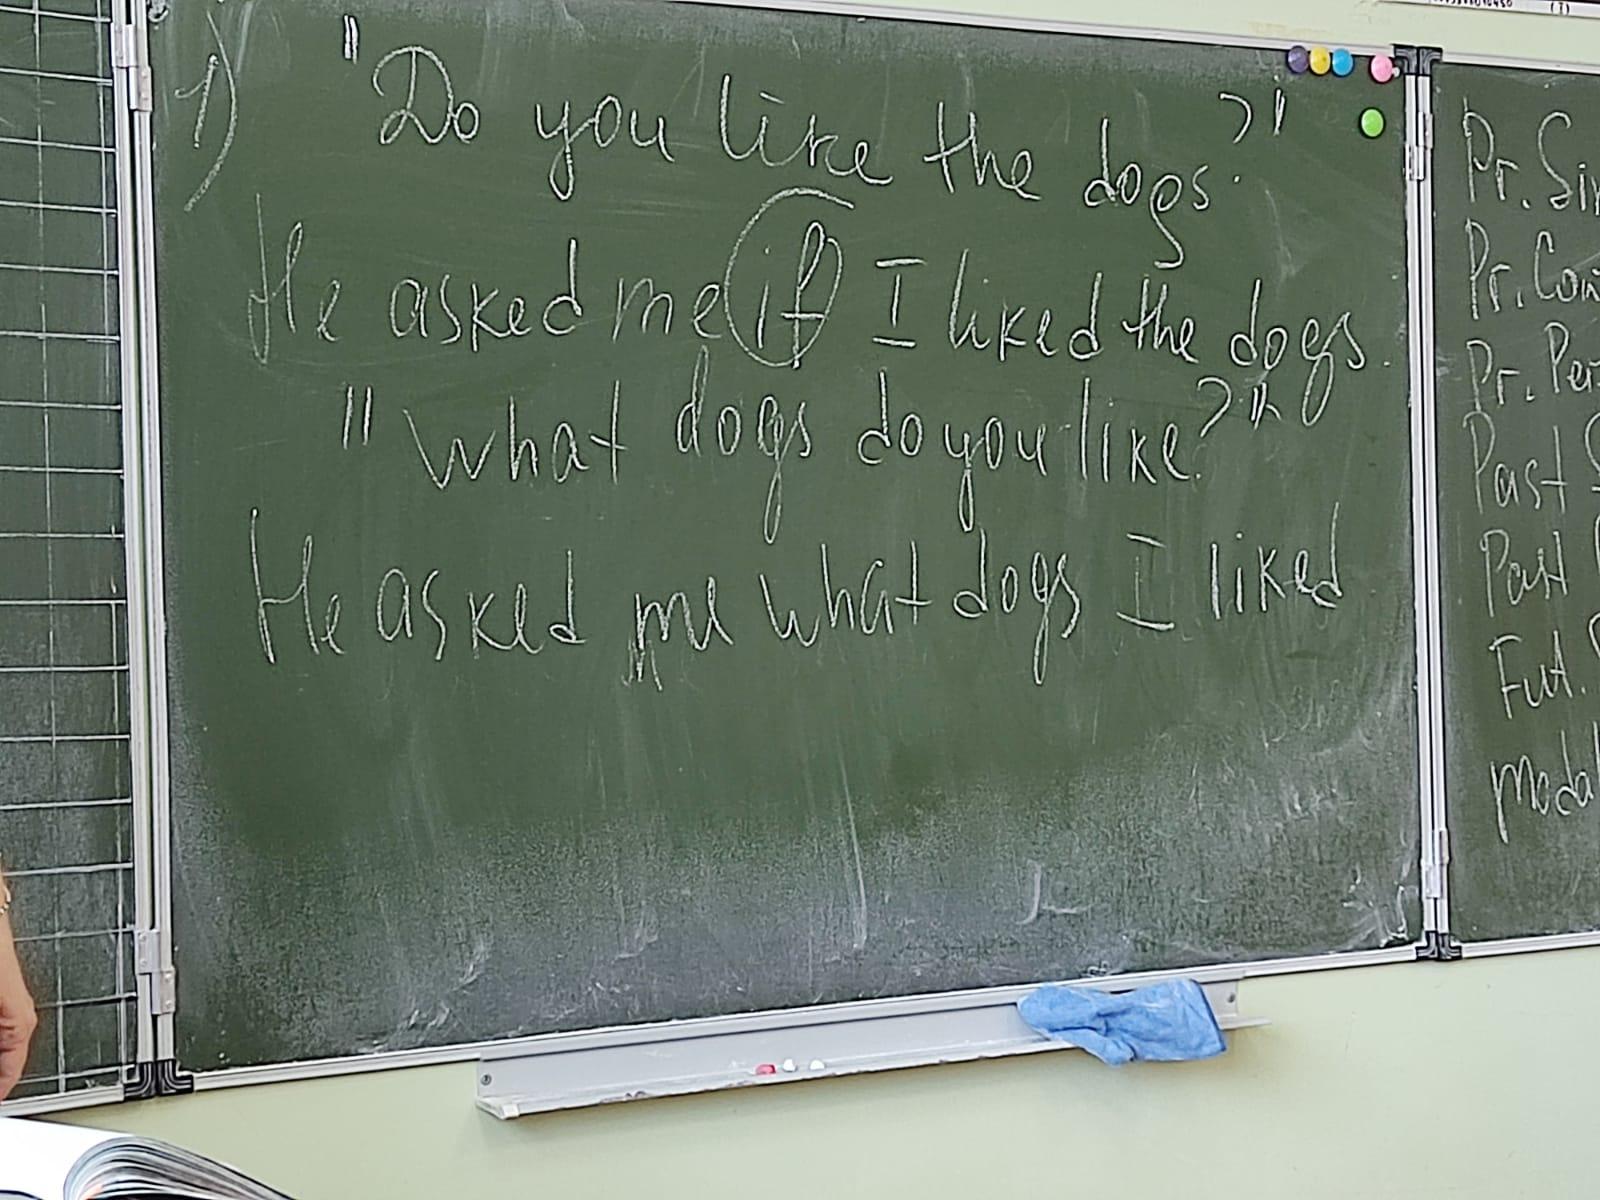 1) "Do you like the dogs?"
He asked me if I liked the dogs.
"What dogs do you like?"
He asked me what dogs I liked
Pr. Sim
Pr. Con
Pr. Per
Past S
Past
Fut.
modal